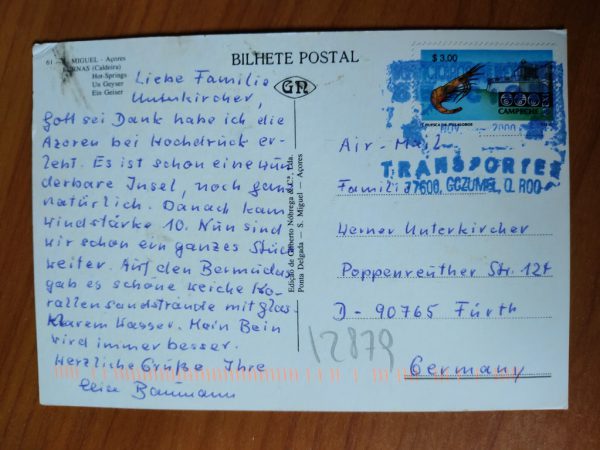 BILHETE POSTAL
MIGUEL - Açores
(Caldeira)
Hot-Springs
Un Geyser
Ein Geiser
GN
Liebe Familie
Unterkircher,
Gott sei Dank habe ich die
Azoren bei Hochdruck er-
lebt. Es ist schon eine wun
derbare Insel, noch ganz
natürlich. Danach kam
Windstärke 10. Nun sind
wir schon ein ganzes Stück
weiter. Auf den Bermudas
gab es schöne weiche Ko-
rallensandstrände mit glas-
klarem Wasser. Mein Bein
wird immer besser.
Herzliche Grüße Ihre
Baumann
Edição de Gilberto Nóbrega & C.ª, Lda.
Ponta Delgada - S. Miguel - Açores
$ 3.00
CAMPECHE
NOV. 2000
TRANSPORTES
77600, COZUMEL, Q. ROO
Air-Mail
Familie
Werner Unterkircher
Poppenreuther Str. 127
D-90765 Fürth
Germany
12879